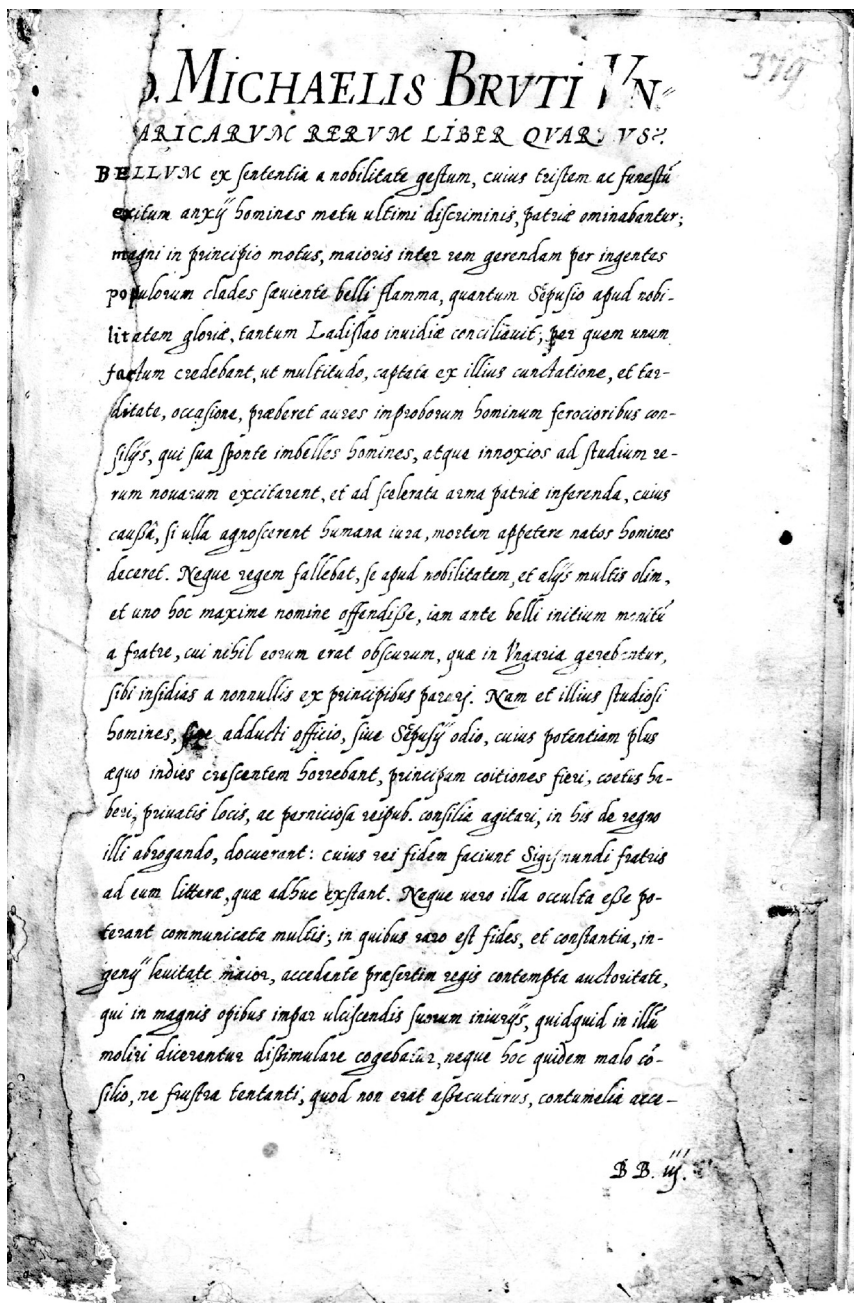 379
O. MICHAELIS BRVTI VN-
ARICARVM RERVM LIBER QVARTVS.
BELLVM ex sententia a nobilitate gestum, cuius tristem ac funestũ
exitum anxij homines metu ultimi discriminis, patriæ ominabantur;
magni in principio motus, maioris inter rem gerendam per ingentes
populorum clades sæuiente belli flamma, quantum Sepusio apud nobi-
litatem gloriæ, tantum Ladislao inuidiæ conciliauit; per quem unum
factum credebant, ut multitudo, captata ex illius cunctatione, et tar-
ditate, occasione, præberet aures improborum hominum ferocioribus con-
silijs, qui sua sponte imbelles homines, atque innoxios ad studium re-
rum nouarum excitarent, et ad scelerata arma patriæ inferenda, cuius
caussâ, si ulla agnoscerent humana iura, mortem appetere natos homines
deceret. Neque regem fallebat, se apud nobilitatem, et alijs multis olim,
et uno hoc maxime nomine offendisse, iam ante belli initium monitũ
a fratre, cui nihil eorum erat obscurum, quæ in Vngaria gerebantur,
sibi insidias a nonnullis ex principibus parari. Nam et illius studiosi
homines, siue adducti officio, siue Sepusij odio, cuius potentiam plus
æquo indies crescentem horrebant, principum coitiones fieri, coetus ha-
beri, priuatis locis, ac perniciosa reipub. consilia agitari, in his de regno
illi abrogando, docuerant: cuius rei fidem faciunt Sigismundi fratris
ad eum litteræ, quæ adhuc exstant. Neque uero illa occulta esse po-
terant communicata multis; in quibus raro est fides, et constantia, in-
genij leuitate maior, accedente præsertim regis contempta auctoritate,
qui in magnis opibus impar ulciscendis suorum iniurijs, quidquid in illũ
moliri dicerentur dissimulare cogebatur, neque hoc quidem malo cõ-
silio, ne frustra tentanti, quod non erat assecuturus, contumelia acce-
B B. iij.